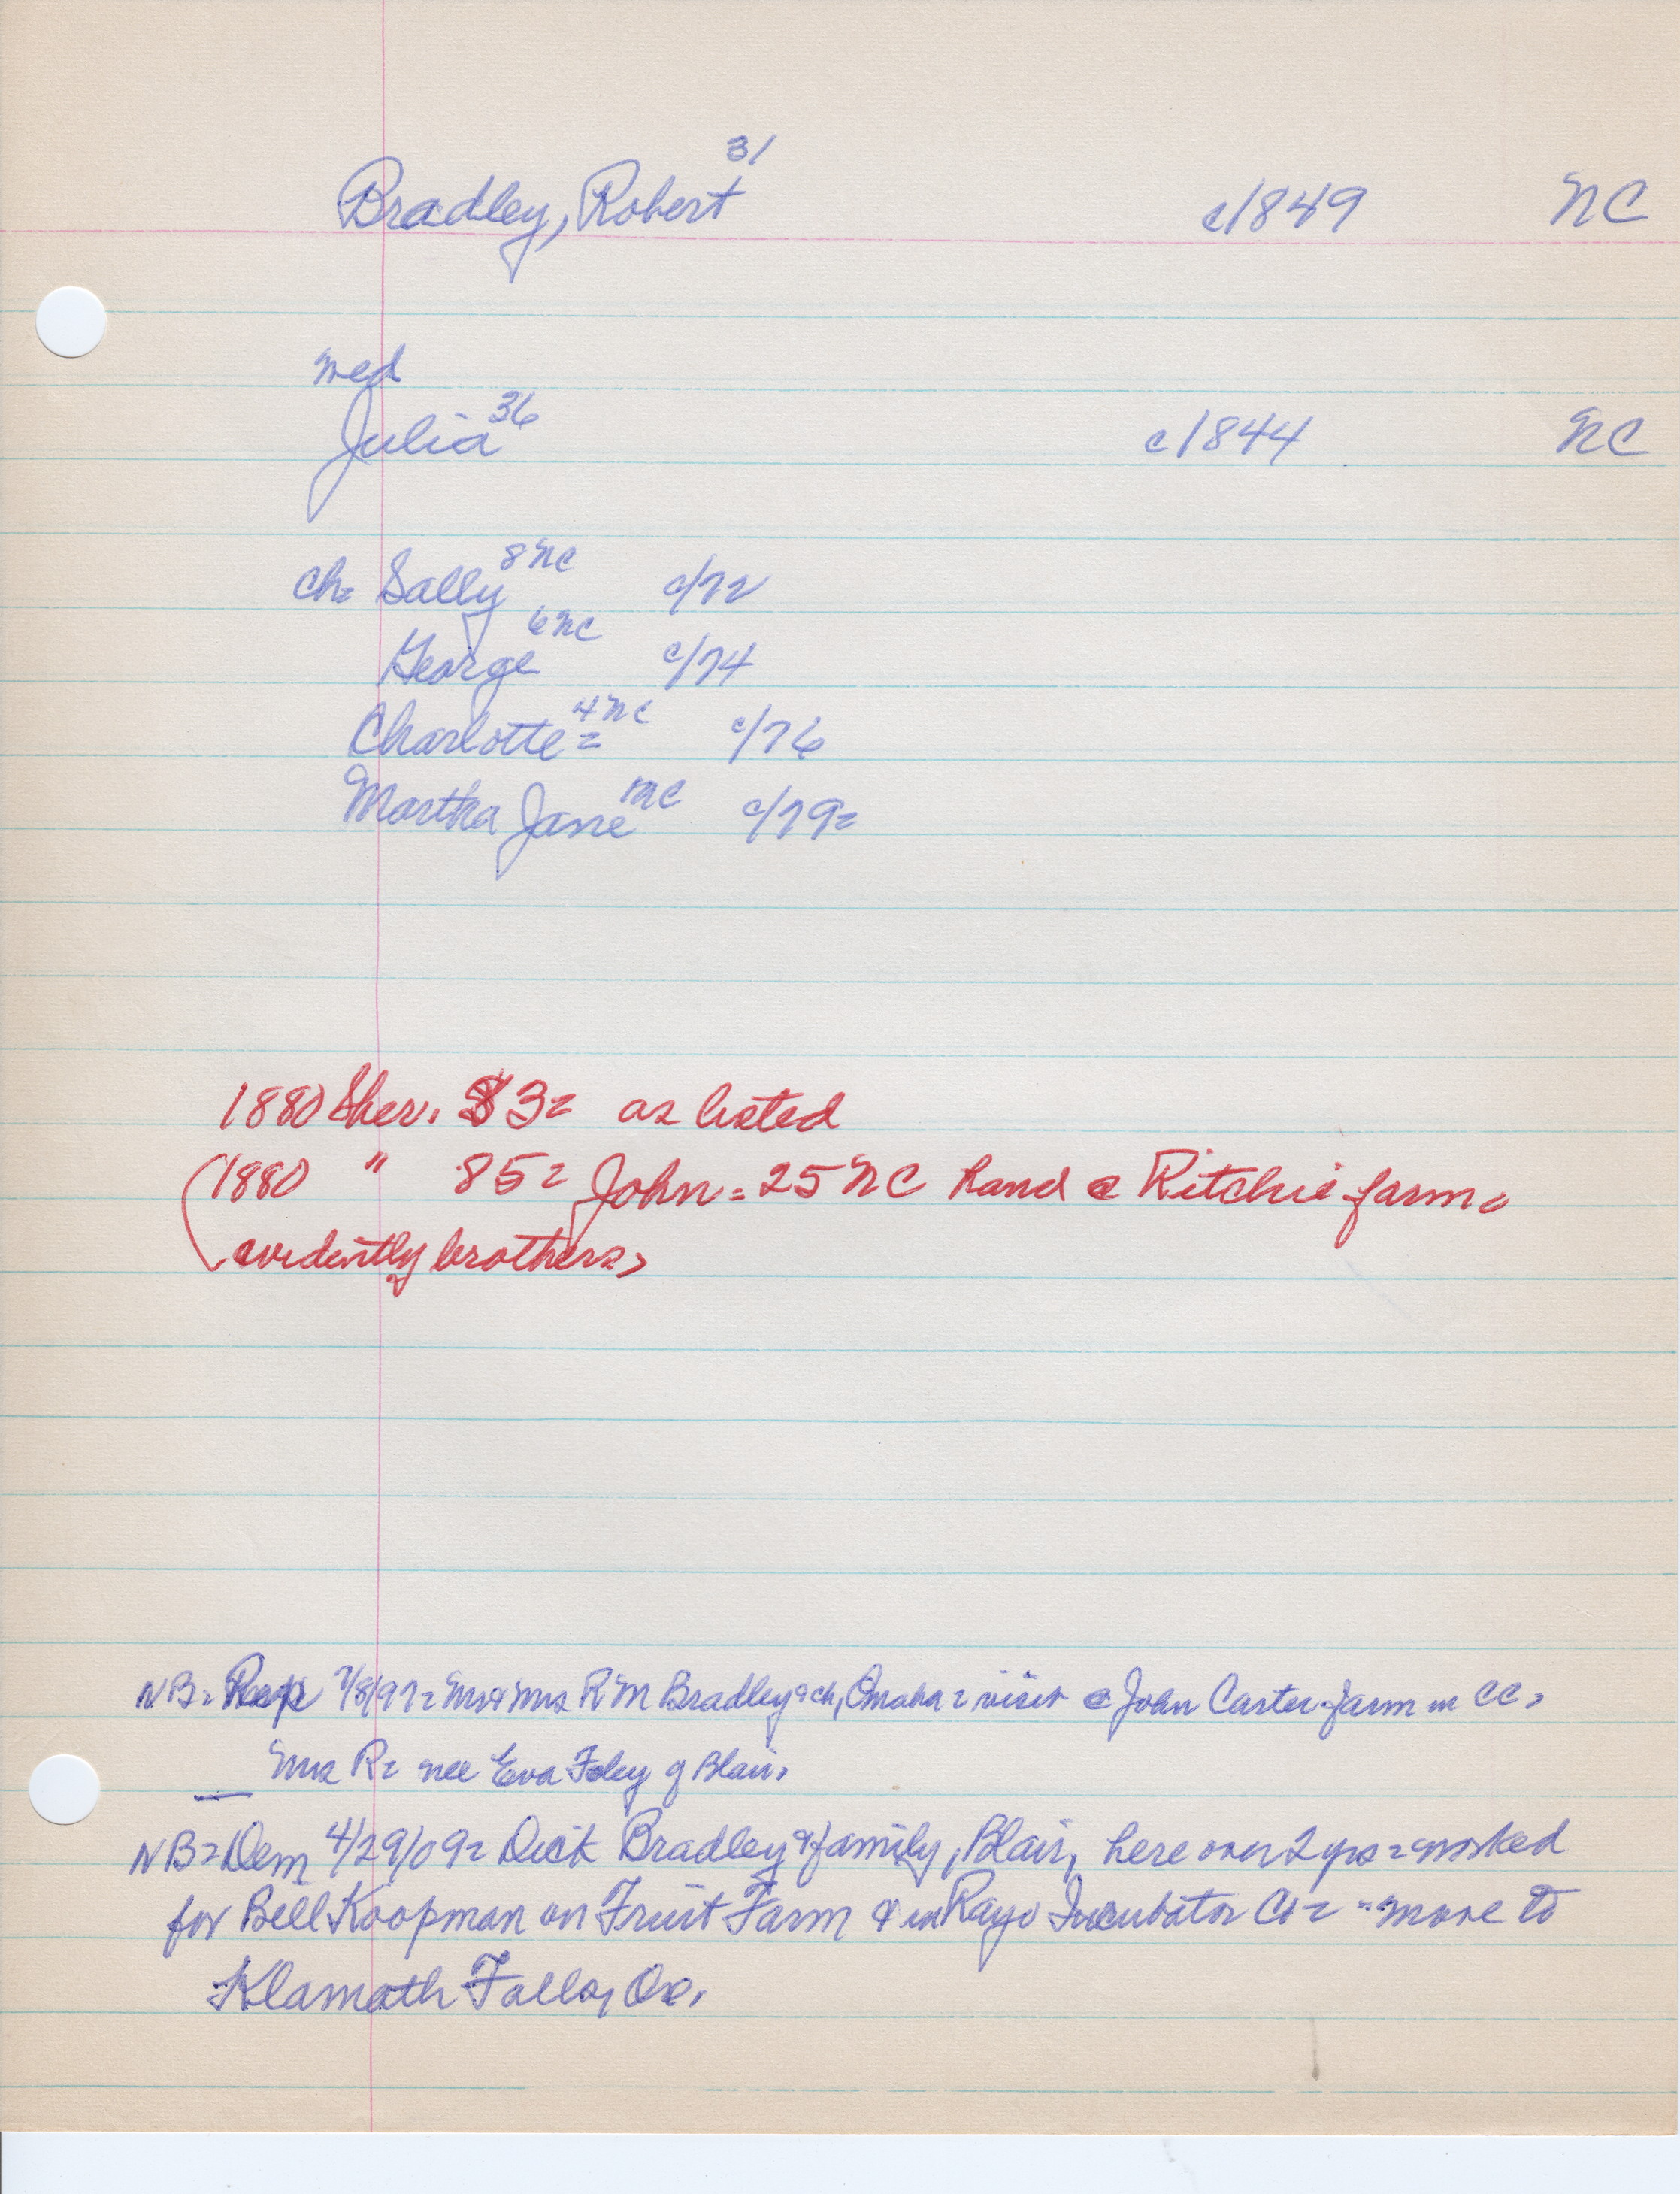 31
Bradley, Robert c1849 NC
med
Julia 36 c1844 NC
ch= Sally 8 NC c/72
George 6 NC c/74
Charlotte= 4 NC c/76
Martha Jane 1 NC c/79=
1880 Sher. 83= as listed
(1880 " 85= John=25 NC hand @ Ritchie farm.
evidently brothers,
NB= 7/8/97= Mr & Mrs R M Bradley & ch, Omaha= visit @ John Carter farm in CC,
Mrs R= nee Eva Foley of Blair.
NB=Dem 4/29/09= Dick Bradley & family, Blair, here over 2 yrs= worked
for Bell Koopman on Fruit Farm & in Rayo Incubator Co= move to
Klamath Falls, Or.